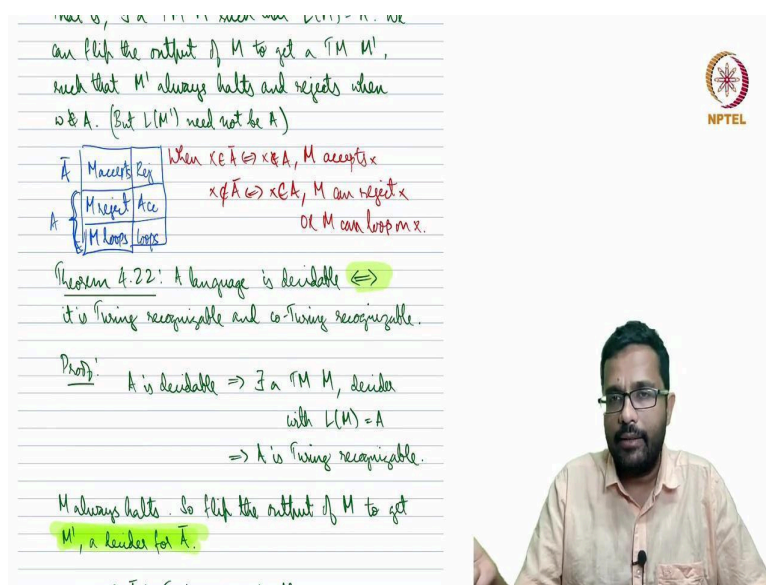 can flip the output of M to get a TM M',
such that M' always halts and rejects when
w ∉ A. (But L(M') need not be A)
Ā M accepts Rej
A M reject Acc
M loops loops
When x ∈ Ā ⇔ x ∉ A, M accepts x
x ∉ Ā ⇔ x ∈ A, M can reject x
OR M can loop on x.
Theorem 4.22: A language is decidable ⇔
it is Turing recognizable and co-Turing recognizable.
Proof:
A is decidable ⇒ ∃ a TM M, decider
with L(M) = A
⇒ A is Turing recognizable.
M always halts. So flip the output of M to get
M', a decider for Ā.
NPTEL